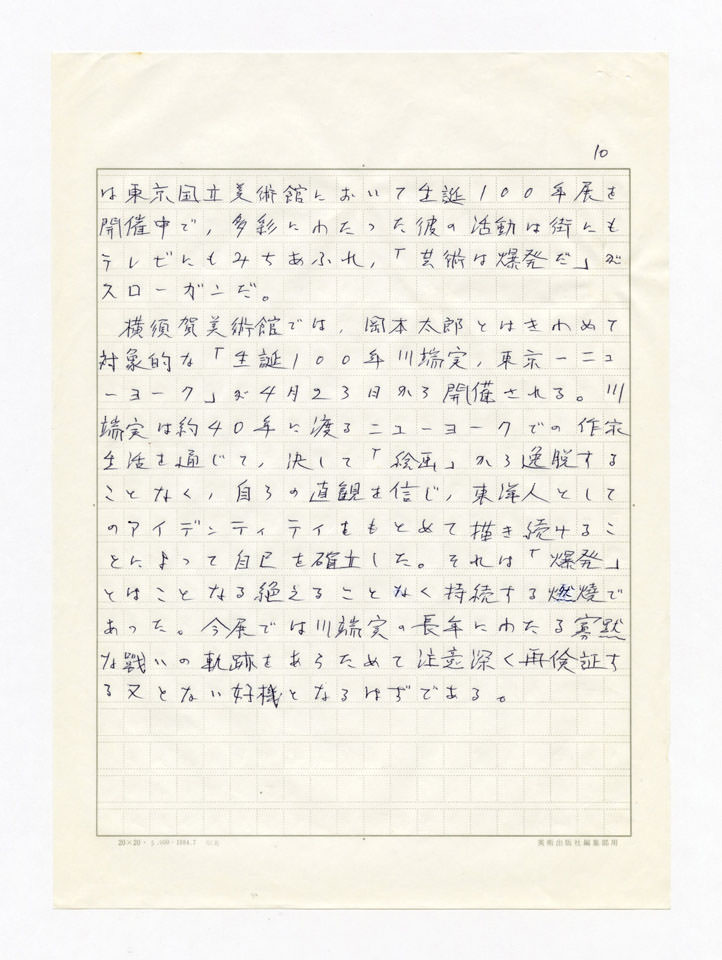 10
は東京国立美術館において生誕100年展を
開催中で，多彩にわたった彼の活動は街にも
テレビにもみちあふれ，「芸術は爆発だ」が
スローガンだ。
横須賀美術館では，岡本太郎とはきわめて
対象的な「生誕100年川端実，東京ーニュ
ーヨーク」が4月23日から開催される。川
端実は約40年に渡るニューヨークでの作家
生活を通じて，決して「絵画」から逸脱する
ことなく，自らの直観を信じ，東洋人として
のアイデンティティをもとめて描き続けるこ
とによって自己を確立した。それは「爆発」
とはことなる絶えることなく持続する燃焼で
あった。今展では川端実の長年にわたる寡黙
な戦いの軌跡をあらためて注意深く再検証す
る又とない好機となるはずである。
20×20・
・1984.7
美術出版社編集部用